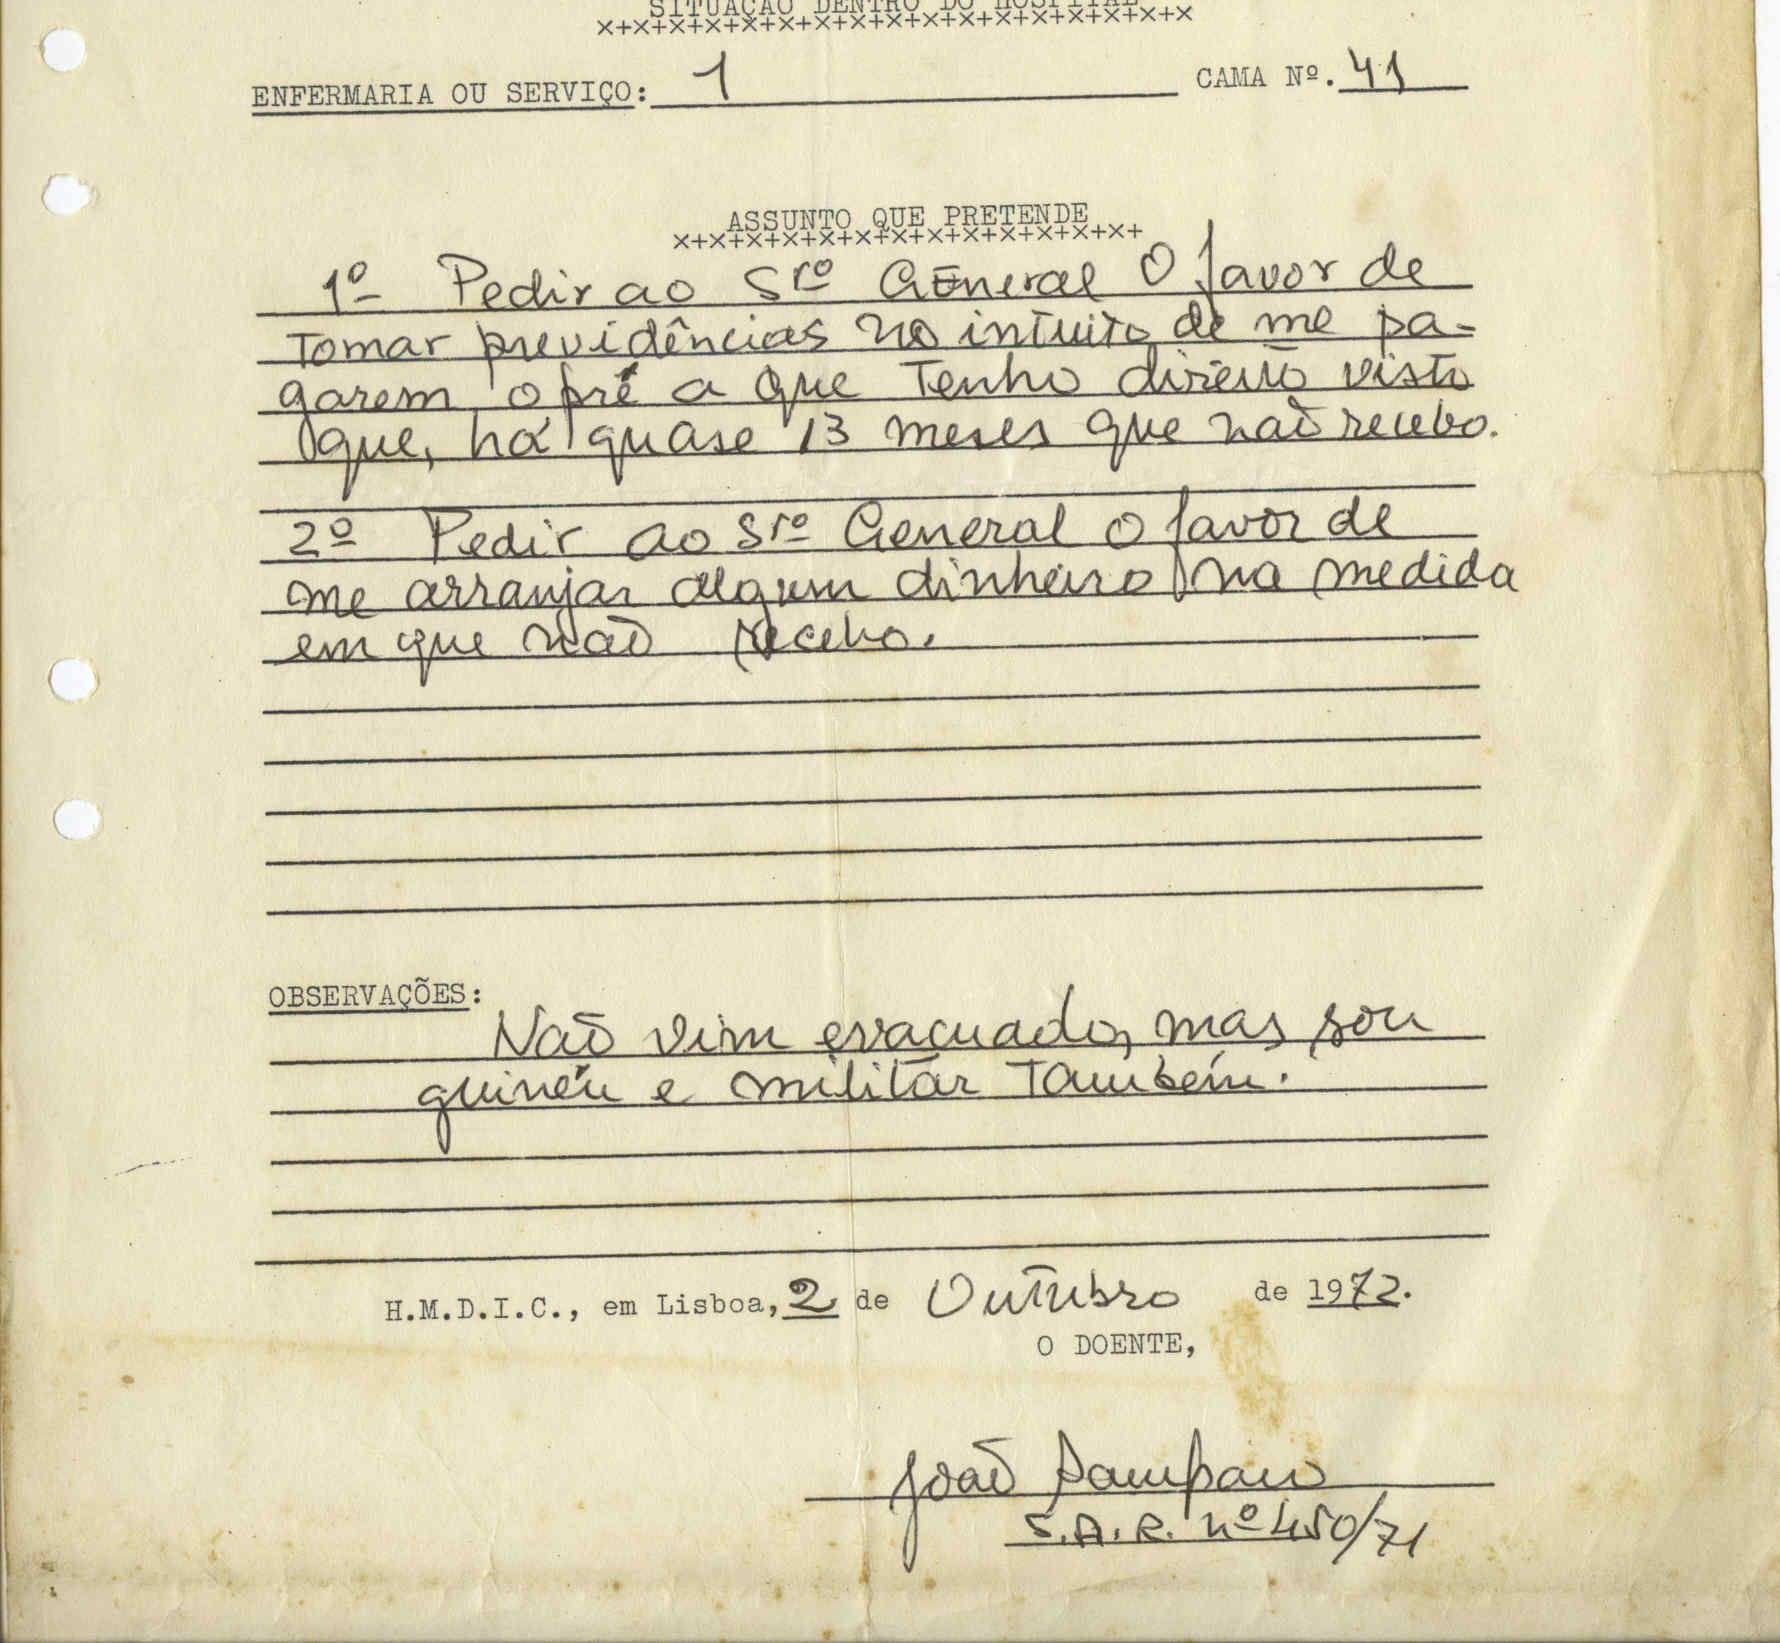 SITUAÇÃO DENTRO DO HOSPITAL
x+x+x+x+x+x+x+x+x+x+x+x+x+x+x+x+x
ENFERMARIA OU SERVIÇO: 1 CAMA Nº. 41
ASSUNTO QUE PRETENDE
x+x+x+x+x+x+x+x+x+x+x+x+x+
1º Pedir ao Srº General O favor de
Tomar previdências no intuito de me pa-
garem o pré a que Tenho direito visto
que, há quase 13 meses que não recebo.
2º Pedir ao Srº General O favor de
me arranjar algum dinheiro na medida
em que não recebo.
OBSERVAÇÕES:
Não vim evacuado, mas sou
guinéu e militar Também.
H.M.D.I.C., em Lisboa, 2 de Outubro de 1972.
O DOENTE,
João Sampaio
S.A.R. nº 450/71